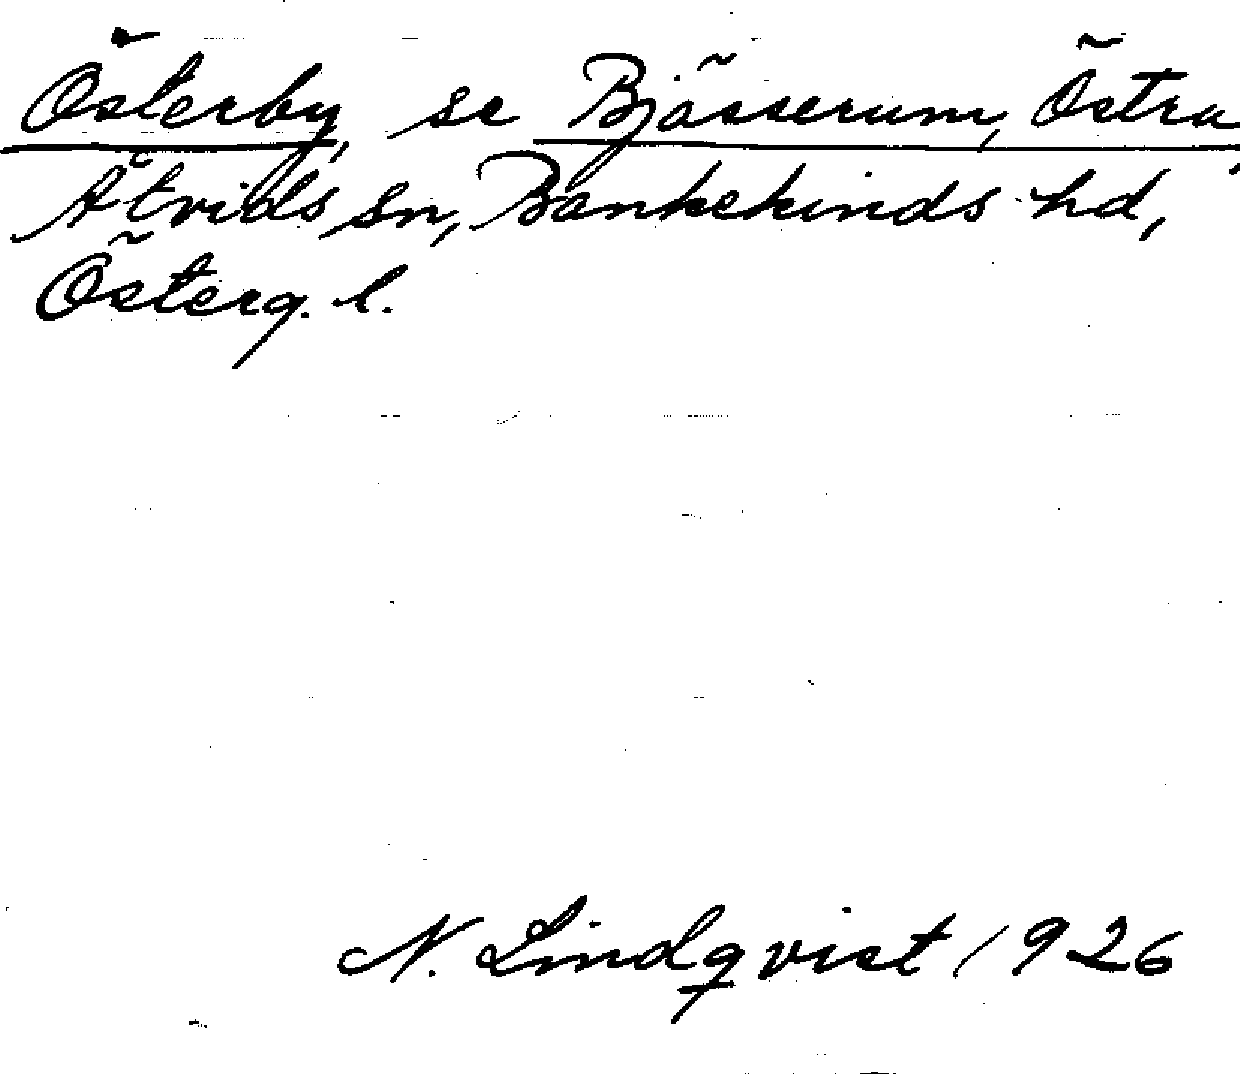 Österby, se Bjässerum, Östra,
Åtvids sn, Bankekinds hd,
Österg. l.
N. Lindqvist 1926